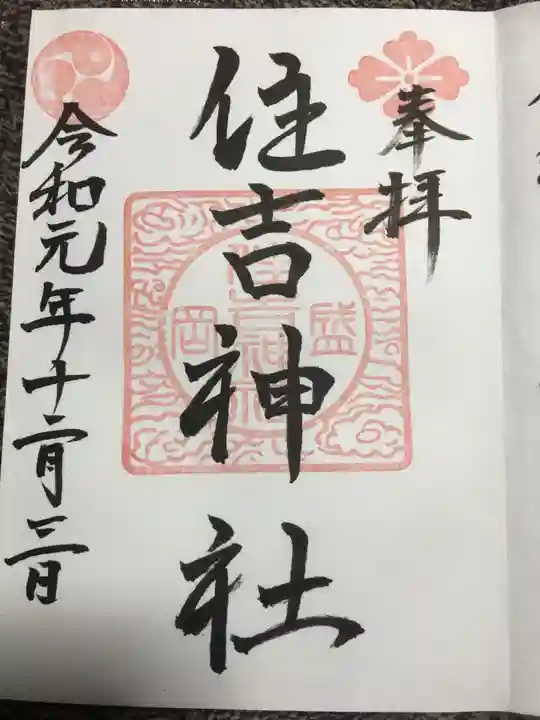 奉拝
住吉神社
盛岡
住吉神社
令和元年十二月三日